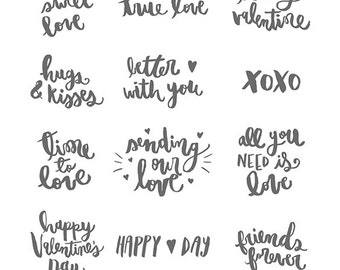 sweet
love
true love
valentine
hugs
& kisses
better
with you
XOXO
time
to
love
sending
our
love
all you
NEED is
love
happy
Valentine's
Day
HAPPY DAY
friends
forever